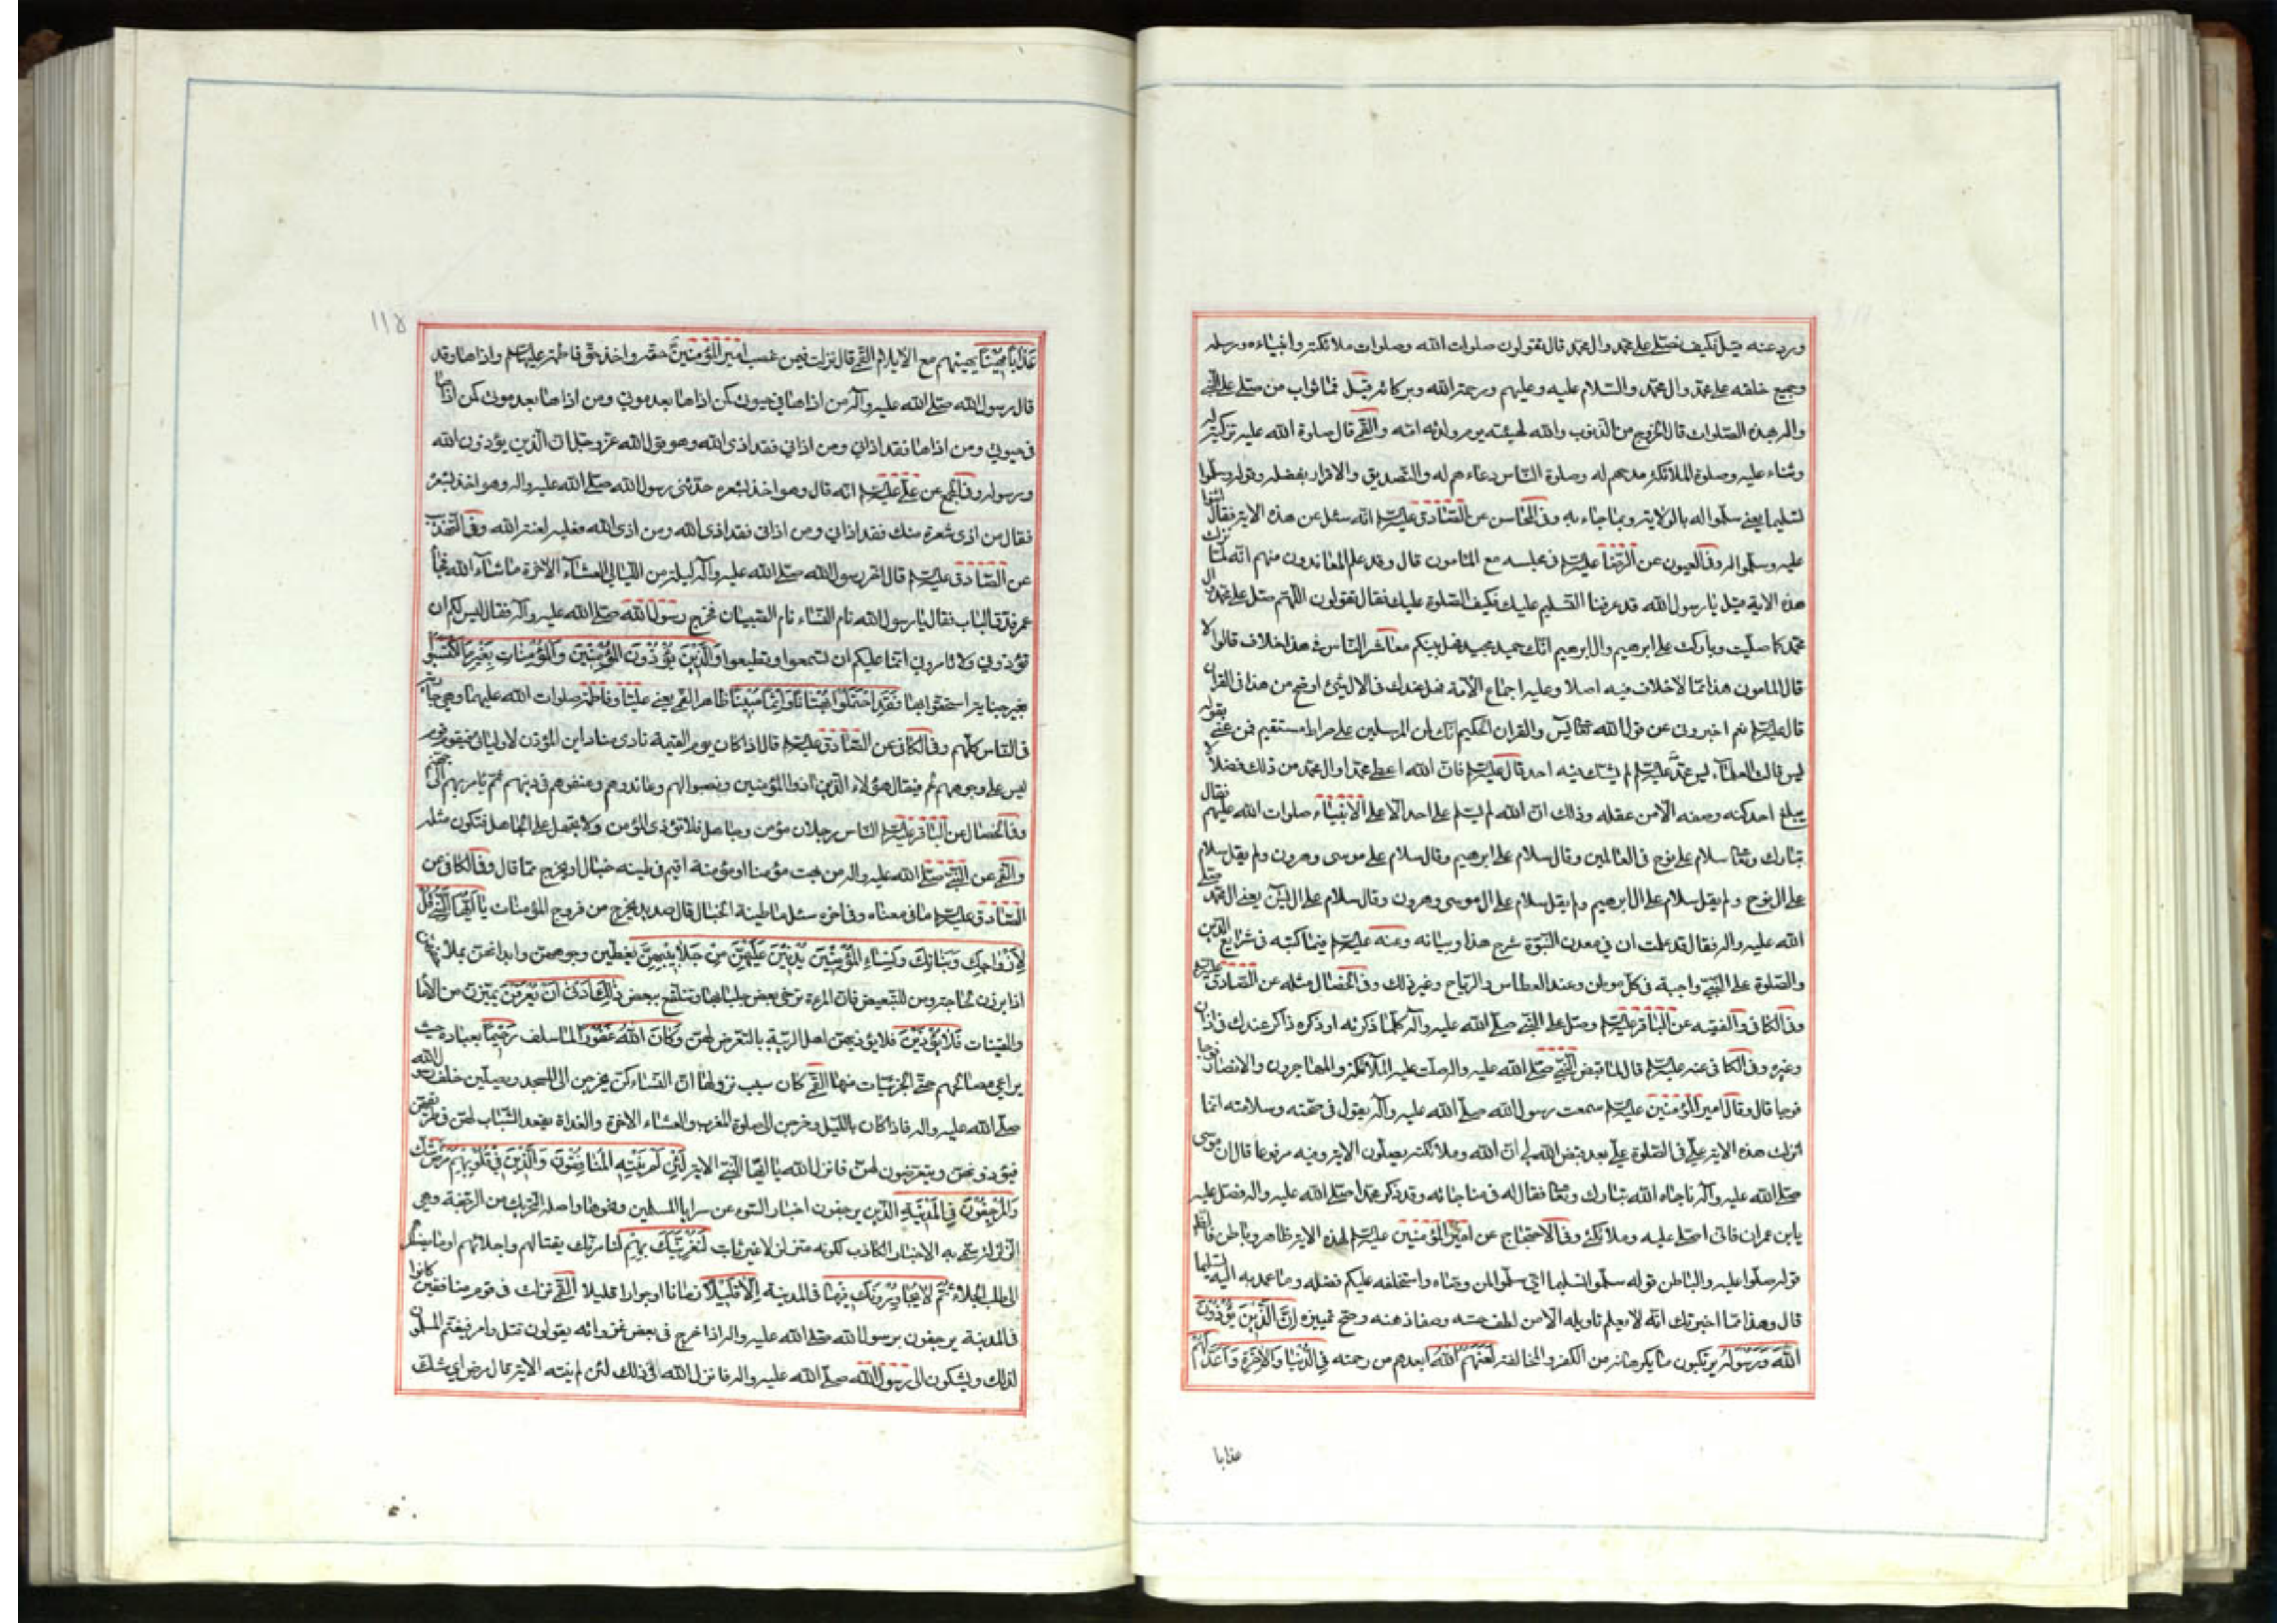 ورد عنه قيل فكيف نصلي على محمد وال محمد قال تقولون صلوات الله وصلوات ملائكته وانبيائه ورسله
وجميع خلقه على محمد وال محمد والسلام عليه وعليهم ورحمة الله وبركاته قيل فما ثواب من صلى على النبي
واله بهذه الصلوات قال الخروج من الذنوب والله كهيئته يوم ولدته امه والقمي قال صلوة الله عليه تزكية له
وثناء عليه وصلوة الملائكة مدحهم له وصلوة الناس دعاءهم له والتصديق والاقرار بفضله وقوله وسلموا
تسليما يعني سلموا له بالولاية وبما جاء به وفي المحاسن عن الصادق عليه السلم انه سئل عن هذه الاية فقال اثنوا
عليه وسلموا له وفي العيون عن الرضا عليه السلم في مجلسه مع المامون قال وقد علم المعاندون منهم انه لما نزلت
هذه الاية قيل يا رسول الله قد عرفنا التسليم عليك فكيف الصلوة عليك فقال تقولون اللهم صل على محمد وال
محمد كما صليت وباركت على ابرهيم وال ابرهيم انك حميد مجيد فهل بينكم معاشر الناس في هذا خلاف قالوا لا
قال المامون هذا مما لا خلاف فيه اصلا وعليه اجماع الامة فهل عندك في الال شيئ اوضح من هذا في القران
قال عليه السلم نعم اخبروني عن قول الله تعالى يس والقران الحكيم انك لمن المرسلين على صراط مستقيم فمن عنى بقوله
يس قالت العلماء يس محمد عليه السلم لم يشك فيه احد قال عليه السلم فان الله اعطى محمدا وال محمد من ذلك فضلا لا
يبلغ احد كنه وصفه الا من عقله وذلك ان الله لم يسلم على احد الا على الانبياء صلوات الله عليهم فقال
تبارك وتعالى سلام على نوح في العالمين وقال سلام على ابرهيم وقال سلام على موسى وهرون ولم يقل سلام
على ال نوح ولم يقل سلام على ال ابرهيم ولم يقل سلام على ال موسى وهرون وقال سلام على ال يس يعني ال محمد صلى
الله عليه واله فقال لقد علمت ان في معدن النبوة شرح هذا وبيانه وعنه عليه السلم فيما كتبه في شرايع الدين
والصلوة على النبي واجبة في كل موطن وعند العطاس والرياح وغير ذلك وفي الخصال مثله عن الصادق عليه السلم
وفي الكافي والفقيه عن الباقر عليه السلم وصل على النبي صلى الله عليه واله كلما ذكرته او ذكره ذاكر عندك في اذان
وغيره وفي الكافي عنه عليه السلم قال لما قبض النبي صلى الله عليه واله صلت عليه الملائكة والمهاجرون والانصار فوجا
فوجا قال وقال امير المؤمنين عليه السلم سمعت رسول الله صلى الله عليه واله يقول في صحته وسلامته انما
انزلت هذه الاية علي في الصلوة علي بعد قبض الله لي ان الله وملائكته يصلون الاية وفيه مرفوعا قال ان موسى
صلى الله عليه واله ناجاه الله تبارك وتعالى فقال له في مناجاته وقد ذكر محمدا صلى الله عليه واله فصل عليه
يا بن عمران فاني اصلي عليه وملائكتي وفي الاحتجاج عن امير المؤمنين عليه السلم لهذه الاية ظاهر وباطن فالظاهر
قوله صلوا عليه والباطن قوله سلموا تسليما اي سلموا لمن وصاه واستخلفه عليكم فضله وما عهد به اليه تسليما
قال وهذا مما اخبرتك انه لا يعلم تاويله الا من لطف حسه وصفا ذهنه وصح تمييزه ان الذين يؤذون
الله ورسوله يرتكبون ما يكرهانه من الكفر والمخالفة لعنهم الله ابعدهم من رحمته في الدنيا والاخرة واعد لهم
عذابا
عذابا مهينا يهينهم مع الايلام القمي قال نزلت فيمن غصب امير المؤمنين حقه واخذ حق فاطمة عليها السلم واذاها وقد
قال رسول الله صلى الله عليه واله من اذاها في حيوتي كمن اذاها بعد موتي ومن اذاها بعد موتي كمن اذاها
في حيوتي ومن اذاها فقد اذاني ومن اذاني فقد اذى الله وهو قول الله عز وجل ان الذين يؤذون الله
ورسوله وفي المجمع عن علي عليه السلم انه قال وهو اخذ بشعره حدثني رسول الله صلى الله عليه واله وهو اخذ بشعره
فقال من اذى شعرة منك فقد اذاني ومن اذاني فقد اذى الله ومن اذى الله فعليه لعنة الله وفي التهذيب
عن الصادق عليه السلم قال اخر رسول الله صلى الله عليه واله ليلة من الليالي العشاء الاخرة ما شاء الله فجاء
عمر فدق الباب فقال يا رسول الله نام النساء نام الصبيان فخرج رسول الله صلى الله عليه واله فقال ليس لكم ان
تؤذوني ولا تامروني انما عليكم ان تسمعوا وتطيعوا والذين يؤذون المؤمنين والمؤمنات بغير ما اكتسبوا
بغير جناية استحقوا بها فقد احتملوا بهتانا واثما مبينا ظاهرا القمي يعني عليا وفاطمة صلوات الله عليهما وهي جارية
في الناس كلهم وفي الكافي عن الصادق عليه السلم قال اذا كان يوم القيمة نادى مناد اين المؤذون لاوليائي فيقوم قوم
ليس على وجوههم لحم فيقال هؤلاء الذين اذوا المؤمنين ونصبوا لهم وعاندوهم وعنفوهم في دينهم ثم يؤمر بهم الى جهنم
وفي الخصال عن الباقر عليه السلم الناس رجلان مؤمن وجاهل فلا تؤذي المؤمن ولا تجهل على الجاهل فتكون مثله
والقمي عن النبي صلى الله عليه واله من بهت مؤمنا او مؤمنة اقيم في طينة خبال او يخرج مما قال وفي الكافي عن
الصادق عليه السلم ما في معناه وفي اخره سئل ما طينة الخبال قال صديد يخرج من فروج المومسات يا ايها النبي قل
لازواجك وبناتك ونساء المؤمنين يدنين عليهن من جلابيبهن يغطين وجوههن وابدانهن بملاحفهن
اذا برزن لحاجة ومن للتبعيض فان المرءة ترخي بعض جلبابها وتتلفع ببعض ذلك ادنى ان يعرفن يميزن من الاماء
والقينات فلا يؤذين فلا يؤذيهن اهل الريبة بالتعرض لهن وكان الله غفورا لما سلف رحيما بعباده حيث
يراعي مصالحهم حتى الجزئيات منها القمي كان سبب نزولها ان النساء كن يخرجن الى المسجد ويصلين خلف رسول الله
صلى الله عليه واله فاذا كان بالليل وخرجن الى صلوة المغرب والعشاء الاخرة والغداة يقعد الشباب لهن في طريقهن
فيؤذونهن ويتعرضون لهن فانزل الله يا ايها النبي الاية لئن لم ينته المنافقون والذين في قلوبهم مرض شك
والمرجفون في المدينة الذين يرجفون اخبار السوء عن سرايا المسلمين ونحوها واصله التحريك من الرجفة وهي
الزلزلة سمي به الاخبار الكاذب لكونه متزلزلا غير ثابت لنغرينك بهم لنامرنك بقتالهم واجلائهم او ما يضطرهم
الى طلب الجلاء ثم لا يجاورونك فيها في المدينة الا قليلا زمانا او جوارا قليلا القمي نزلت في قوم منافقين كانوا
في المدينة يرجفون برسول الله صلى الله عليه واله اذا خرج في بعض غزواته يقولون قتل واسر فيغتم المسلمون
لذلك ويشكون الى رسول الله صلى الله عليه واله فانزل الله في ذلك لئن لم ينته الاية مما مرض اي شك